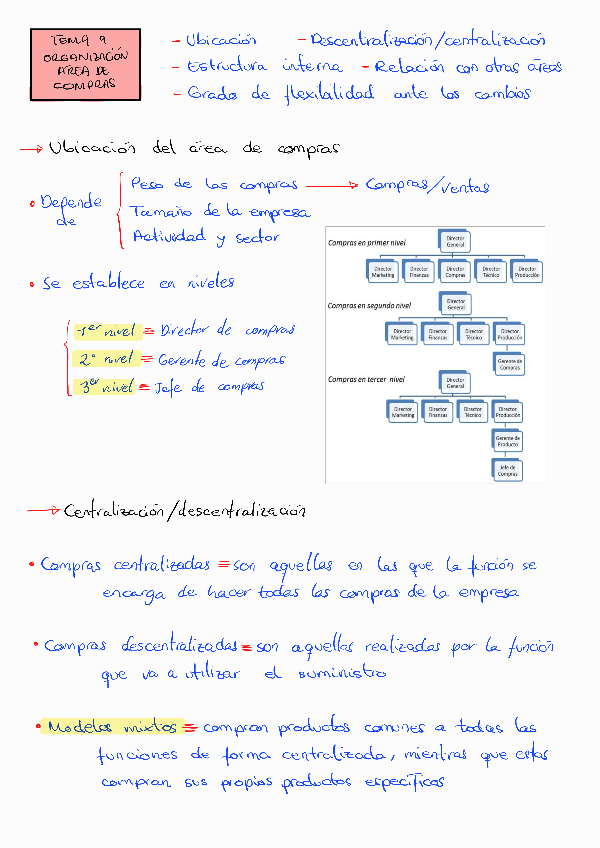 TEMA 9
ORGANIZACIÓN
ÁREA DE
COMPRAS
- Ubicación - Descentralización/centralización
- Estructura interna - Relación con otras áreas
- Grado de flexibilidad ante los cambios
→ Ubicación del área de compras
• Depende de
Peso de las compras → Compras/ventas
Tamaño de la empresa
Actividad y sector
• Se establece en niveles
1er nivel = Director de compras
2º nivel = Gerente de compras
3er nivel = Jefe de compras
Compras en primer nivel
Director General
Director Marketing
Director Finanzas
Director Compras
Director Técnico
Director Producción
Compras en segundo nivel
Director General
Director Marketing
Director Finanzas
Director Técnico
Director Producción
Gerente de Compras
Compras en tercer nivel
Director General
Director Marketing
Director Finanzas
Director Técnico
Director Producción
Gerente de Producto
Jefe de Compras
→ Centralización/descentralización
• Compras centralizadas = son aquellas en las que la función se
encarga de hacer todas las compras de la empresa
• Compras descentralizadas = son aquellas realizadas por la función
que va a utilizar el suministro
• Modelos mixtos = compran productos comunes a todas las
funciones de forma centralizada, mientras que estas
compran sus propios productos específicos